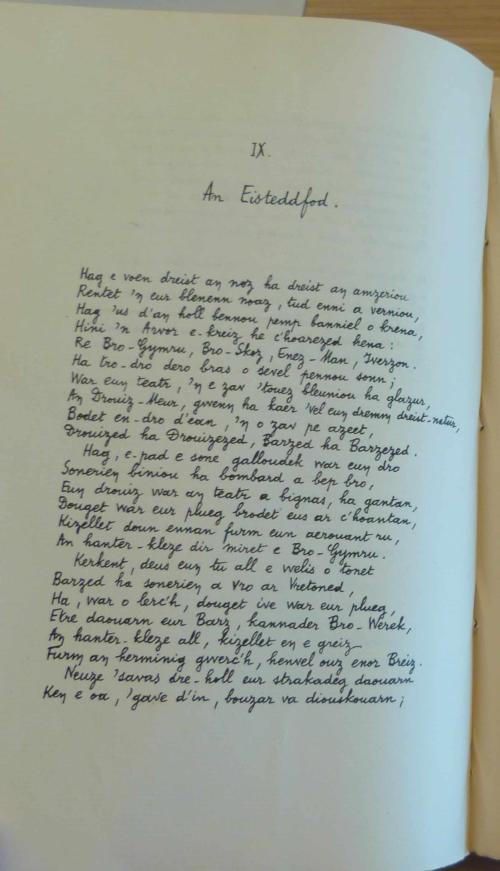 IX.
An Eisteddfod.
Hag e voen dreist an noz ha dreist an amzeriou
Rentet 'n eur blenenn noaz, tud enni a verniou,
Hag 'us d'an holl bennou pemp banniel o krena,
Hini 'n Arvor e-kreiz he c'hoarezed kena:
Re Bro-Gymru, Bro-Skoz, Enez-Man, Iverzon.
Ha tro-dro dero bras o sevel pennou sonn;
War eun teatr, 'n e zav 'touez bleuniou ha glazur,
An Drouiz-Meur, gwenn ha kaer 'vel eun dremm dreist-natur,
Bodet en-dro d'ean, 'n o zav pe azeet,
Drouized ha Drouizezed, Barzed ha Barzezed.
Hag, e-pad e sone galloudek war eun dro
Sonerien biniou ha bombard a bep bro,
Eun drouiz war an teatr a bignas, ha gantan,
Douget war eur plueg brodet eus ar c'hoantan,
Kizellet doun ennan furm eun aerouant ru,
An hanter-kleze dir miret e Bro-Gymru.
Kerkent, deus eun tu all e welis o tonet
Barzed ha sonerien a Vro ar Vretoned,
Ha, war o lerc'h, douget ive war eur plueg,
Etre daouarn eur Barz, kannader Bro-Werek,
An hanter-kleze all, kizellet en e greiz
Furm an herminig gwerc'h, henvel ouz enor Breiz.
Neuze 'savas dre-holl eur strakadeg daouarn
Ken e oa, 'gave d'in, bouzar va diouskouarn;